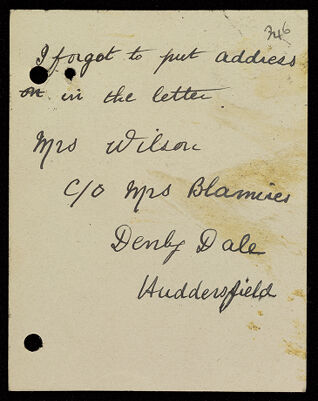 346
I forgot to put address
on in the letter
Mrs Wilson
C/O Mrs Blamires
Denby Dale
Huddersfield